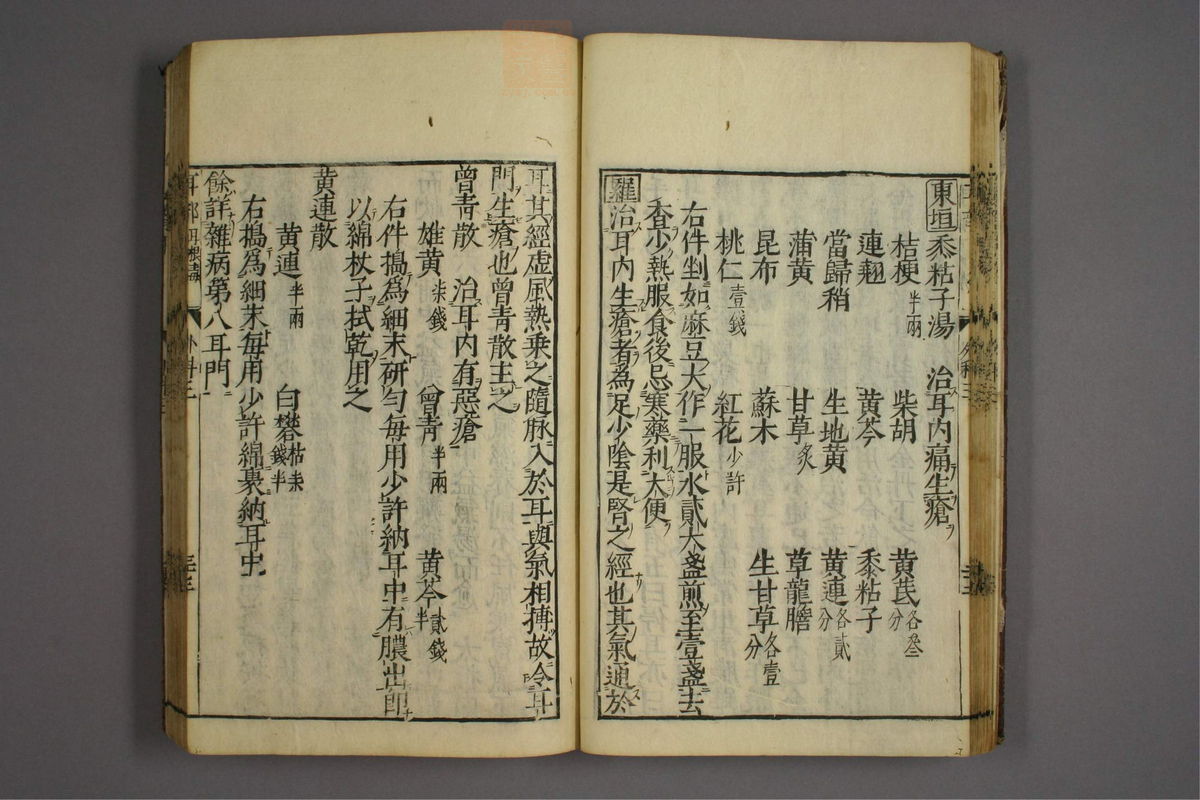 東垣黍粘子湯 治耳內痛生瘡
桔梗半兩 柴胡 黃芪各叁分
連翹 黃芩 黍粘子
當歸稍 生地黃 黃連各貳分
蒲黃 甘草炙 草龍膽
昆布 蘇木 生甘草各壹分
桃仁壹錢 紅花少許
右件剉如麻豆大作一服水貳大盞煎至壹盞去
查少熱服食後忌寒藥利大便
羅治耳內生瘡者為足少陰是腎之經也其氣通於
耳其經虛風熱乘之隨脉入於耳與氣相搏故令耳
門生瘡也曾青散主之
曾青散 治耳內有惡瘡
雄黃柒錢 曾青半兩 黃芩貳錢半
右件搗為細末研勻每用少許納耳中有膿出即
以綿杖子拭乾用之
黃連散
黃連半兩 白礬枯柒錢半
右搗為細末每用少許綿裹納耳中
餘詳雜病第八耳門